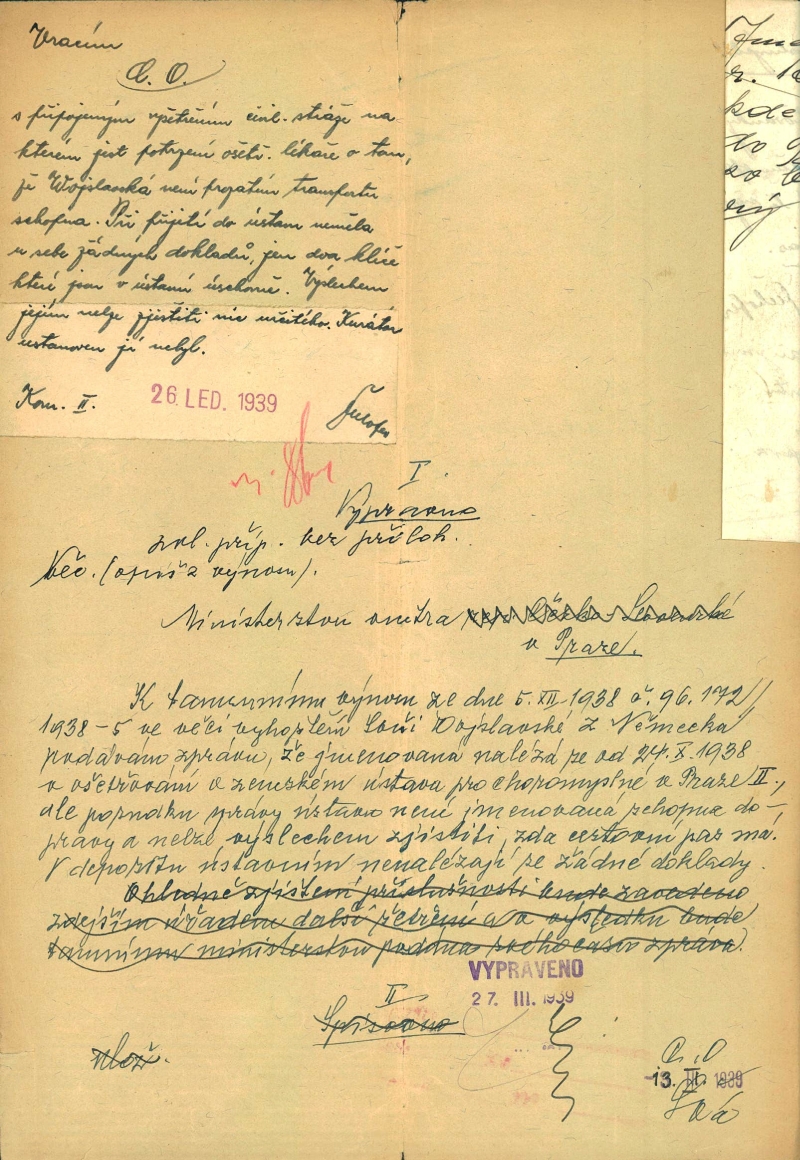 Vracím
C. O.
s připojeným vyšetřením civil. stráže na
kterém jest potvrzení ošetř. lékaře o tom,
že Wojslavská není prozatím transportu
schopna. Při přijetí do ústavu neměla
u sebe žádných dokladů, jen dva klíče
které jsou v ústavní úschově. Výslechem
jejím nelze zjistiti nic určitého. Kurátor
ustanoven jí nebyl.
Kom. II.
26. LED. 1939
I.
Výpravna
zvl. příp. bez příloh.
Věc. (opiš z výnosu).
Ministerstvu vnitra
v Praze.
K tamnímu výnosu ze dne 5. XII 1938 č. 96.172/
1938-5 ve věci vyhoštění Soši Vojslavské z Německa
podávám zprávu, že jmenovaná nalézá se od 24. X. 1938
v ošetřování v zemském ústavu pro choromyslné v Praze II.,
dle posudku správy ústavu není jmenovaná schopna do-
pravy a nelze výslechem zjistiti, zda cestovní pas má.
V depositu ústavním nenalézají se žádné doklady.
Ohledně zjištění příslušnosti bude zavedeno
zdejším úřadem další šetření a o výsledku bude
tamnímu ministerstvu podána svého času zpráva.
VYPRAVENO
27. III. 1939
II
Spisovna
Ulož.
C. O
13. II. 1939